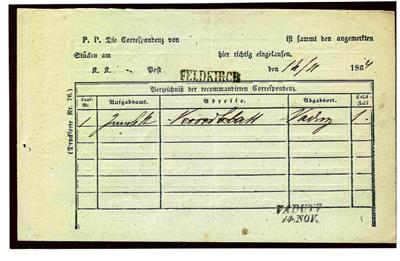 P. P. Die Correspondenz von ist sammt den angemerkten
Stücken am hier richtig eingelaufen.
K. K. Post FELDKIRCH den 14/11 1864
Verzeichniß der recommandirten Correspondenz.
Aufgabsamt. Adresse. Abgabsort.
1 1.
(Drucksorte Nr. 76.)
VADUTZ
14. NOV.